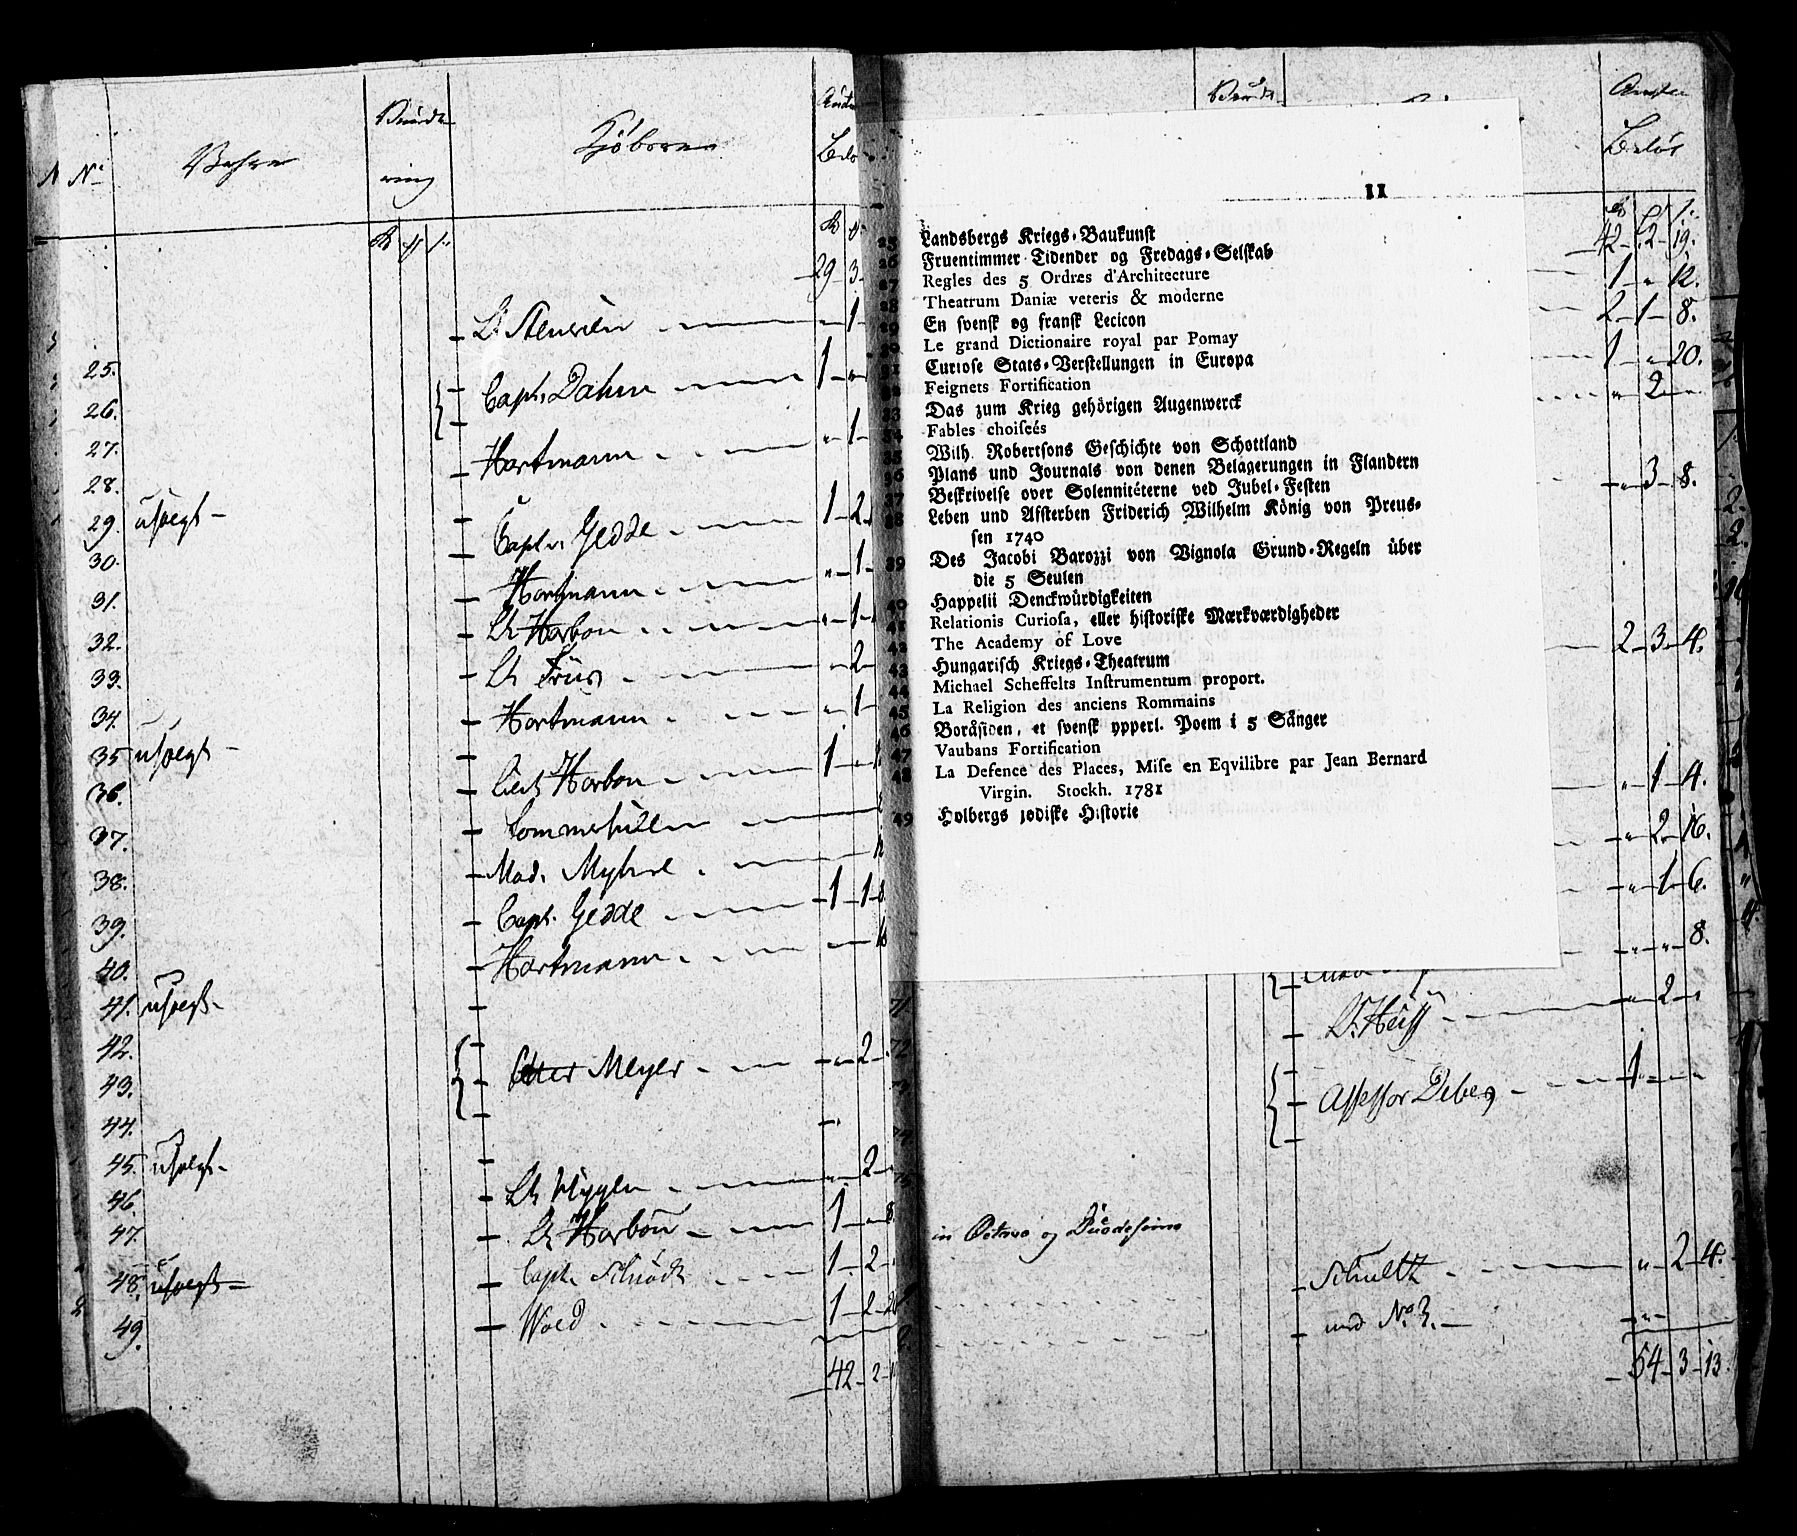 No
Vurde
ring
Kjøberne
Beløb
29 3
Lt Stensen 1
25.
Capt. Dahm 1
26.
27.
Hartmann 1
28.
29. usolgt
Capt. Gedde 1 2
30.
Hartmann 1
31.
Lt Harbou 1
32.
Lt Friis 2
33.
Hartmann 1
34.
35 usolgt
Lieut Harbou 1
36.
37.
Mad. Myhre
38.
Capt. Gedde 1 1
39.
Hartmann
40.
41. usolgt
42.
Meyer 2
43.
44.
45. usolgt
Lt Wiggers 2
46.
Lt Harbou 1 8
47.
Capt. Schiødt 1 2
48. usolgt
Wold 1 2
49.
42 2
Beløb
42 2 19.
1 " 12.
2 1 8.
1 " 20.
" 2
" 3 8.
2 3 4.
" 1 4.
" 2 16.
" 1 6.
" " 8.
11
25 Landsbergs Kriegs-Baukunst
26 Fruentimmer Tidender og Fredags-Selskab
27 Regles des 5 Ordres d'Architecture
28 Theatrum Daniæ veteris & moderne
29 En svensk og fransk Lecicon
30 Le grand Dictionaire royal par Pomay
31 Curiose Stats-Verstellungen in Europa
32 Feignets Fortification
33 Das zum Krieg gehörigen Augenwerck
34 Fables choiseés
35 Wilh. Robertsons Geschichte von Schottland
36 Plans und Journals von denen Belagerungen in Flandern
37 Beskrivelse over Solennitéterne ved Jubel-Festen
38 Leben und Absterben Friderich Wilhelm König von Preus-
sen 1740
39 Des Jacobi Barozzi von Vignola Grund-Regeln über
die 5 Seulen
40 Happelii Denckwürdigkeiten
41 Relationis Curiosa, eller historiske Mærkværdigheder
42 The Academy of Love
43 Hungarisch Kriegs-Theatrum
44 Michael Scheffelts Instrumentum proport.
45 La Religion des anciens Rommains
46 Boråsiden, et svensk ypperl. Poem i 5 Sånger
47 Vaubans Fortification
48 La Defence des Places, Mise en Eqvilibre par Jean Bernard
Virgin. Stockh. 1781
49 Holbergs jødiske Historie
71
Lt. Heiss 2
72
Assessor Debes 1
in Octavo og Duodesimo
Schultz " 2 4.
med No 3.
54 3 13.